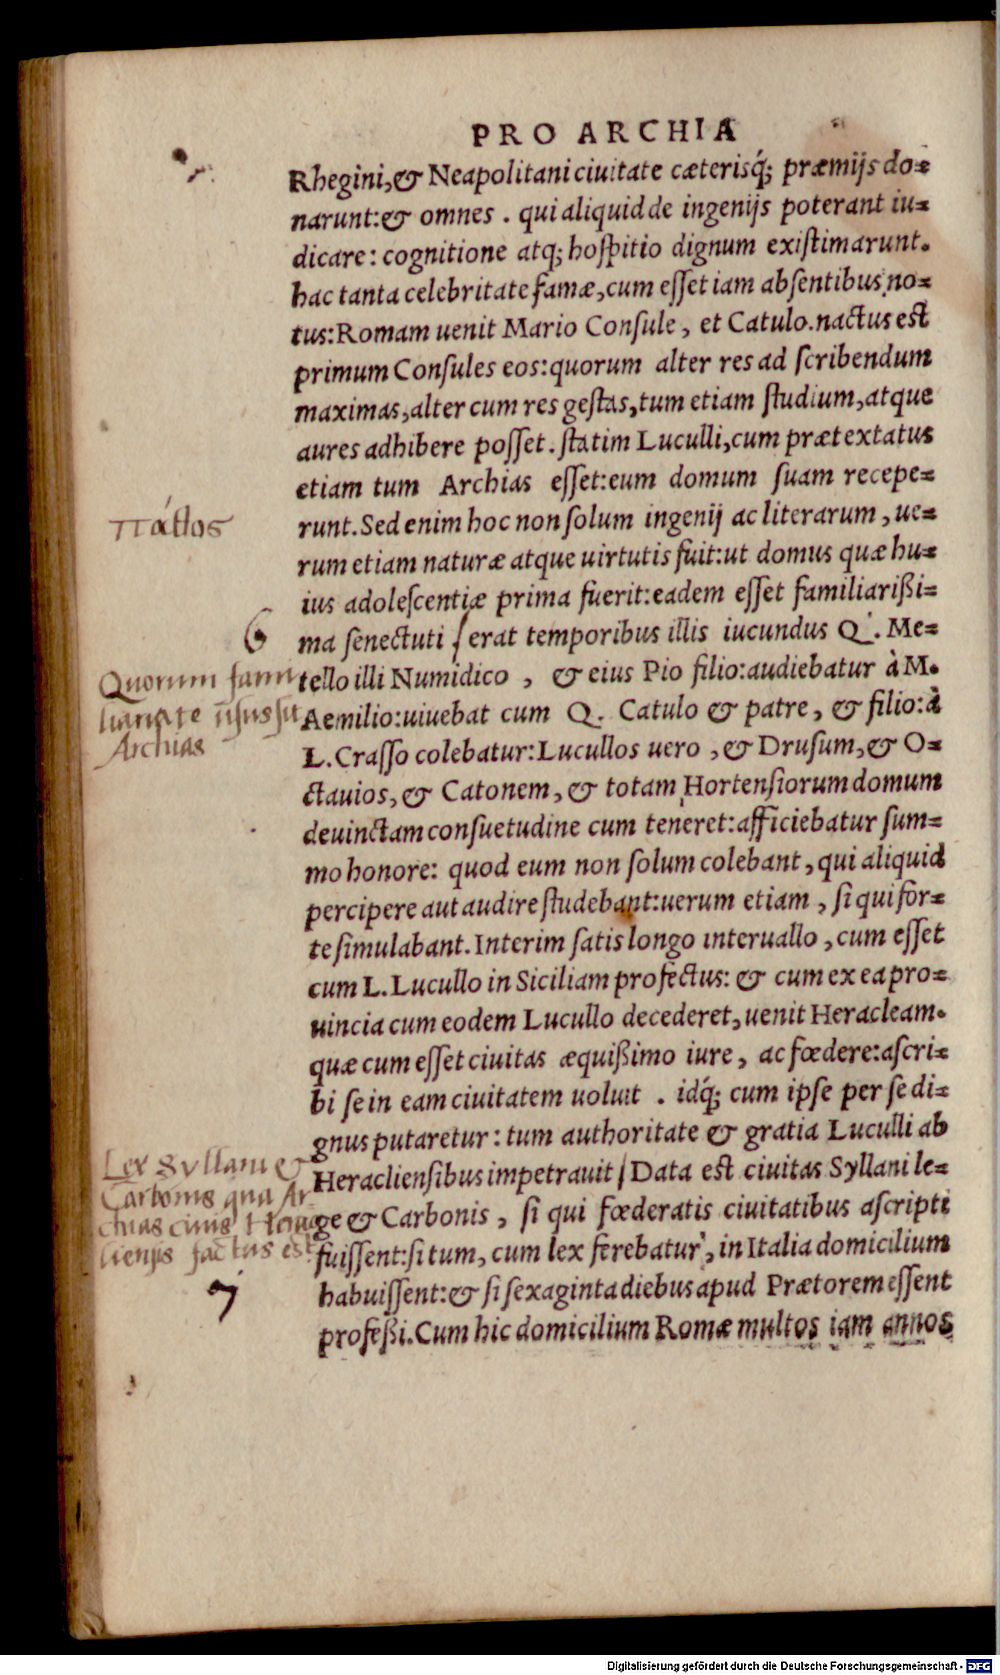 PRO ARCHIA
Rhegini, & Neapolitani ciuitate cæterisq́; præmijs do=
narunt: & omnes . qui aliquid de ingenijs poterant iu=
dicare: cognitione atq; hoſpitio dignum exiſtimarunt.
hac tanta celebritate famæ, cum eſſet iam abſentibus no=
tus: Romam uenit Mario Conſule, et Catulo. nactus eſt
primum Conſules eos: quorum alter res ad ſcribendum
maximas, alter cum res geſtas, tum etiam ſtudium, atque
aures adhibere poſſet. ſtatim Luculli, cum prætextatus
etiam tum Archias eſſet: eum domum ſuam recepe=
runt. Sed enim hoc non ſolum ingenij ac literarum, ue=
rum etiam naturæ atque uirtutis fuit: ut domus quæ hu=
ius adoleſcentiæ prima fuerit: eadem eſſet familiarißi=
ma ſenectuti / erat temporibus illis iucundus Q. Me=
tello illi Numidico, & eius Pio filio: audiebatur à M.
Aemilio: uiuebat cum Q. Catulo & patre, & filio: à
L. Craſſo colebatur: Lucullos uero, & Druſum, & O=
ctauios, & Catonem, & totam Hortenſiorum domum
deuinctam conſuetudine cum teneret: afficiebatur ſum=
mo honore: quod eum non ſolum colebant, qui aliquid
percipere aut audire ſtudebant: uerum etiam, ſi qui for=
te ſimulabant. Interim ſatis longo interuallo, cum eſſet
cum L. Lucullo in Siciliam profectus: & cum ex ea pro=
uincia cum eodem Lucullo decederet, uenit Heracleam.
quæ cum eſſet ciuitas æquißimo iure, ac fœdere: aſcri=
bi ſe in eam ciuitatem uoluit . idq́; cum ipſe per ſe di=
gnus putaretur: tum authoritate & gratia Luculli ab
Heraclienſibus impetrauit / Data eſt ciuitas Syllani le=
ge & Carbonis, ſi qui fœderatis ciuitatibus aſcripti
fuiſſent: ſi tum, cum lex ferebatur, in Italia domicilium
habuiſſent: & ſi ſexaginta diebus apud Prætorem eſſent
profeßi. Cum hic domicilium Romæ multos iam annos
6
Quorum fami
liaritate usus sit
Archias
Lex Syllani &
Carbonis qua Ar
chias ciuis Herac
liensis factus est
7
Digitalisierung gefördert durch die Deutsche Forschungsgemeinschaft - DFG